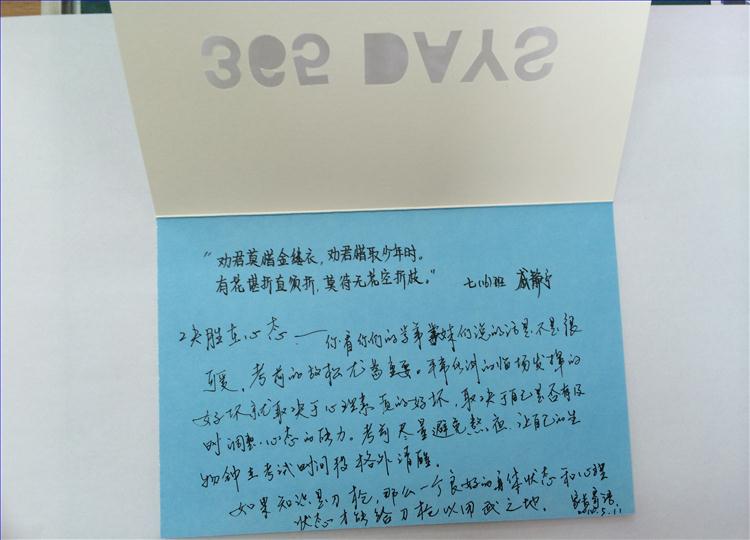 365 DAYS
“劝君莫惜金缕衣，劝君惜取少年时。
有花堪折直须折，莫待无花空折枝。” 七(16)班 戚静宁
决胜在心态——你看你们的学弟学妹们说的话是不是很
可爱，考前的放松尤为重要。平常的临场发挥的
好坏就取决于心理素质的好坏，取决于自己是否有及
时调整心态的能力。考前尽量避免熬夜，让自己的生
物钟在考试时间段格外清醒。
如果知识是刀枪，那么一个良好的身体状态和心理
状态才能给刀枪以用武之地。 家长寄语
5.11